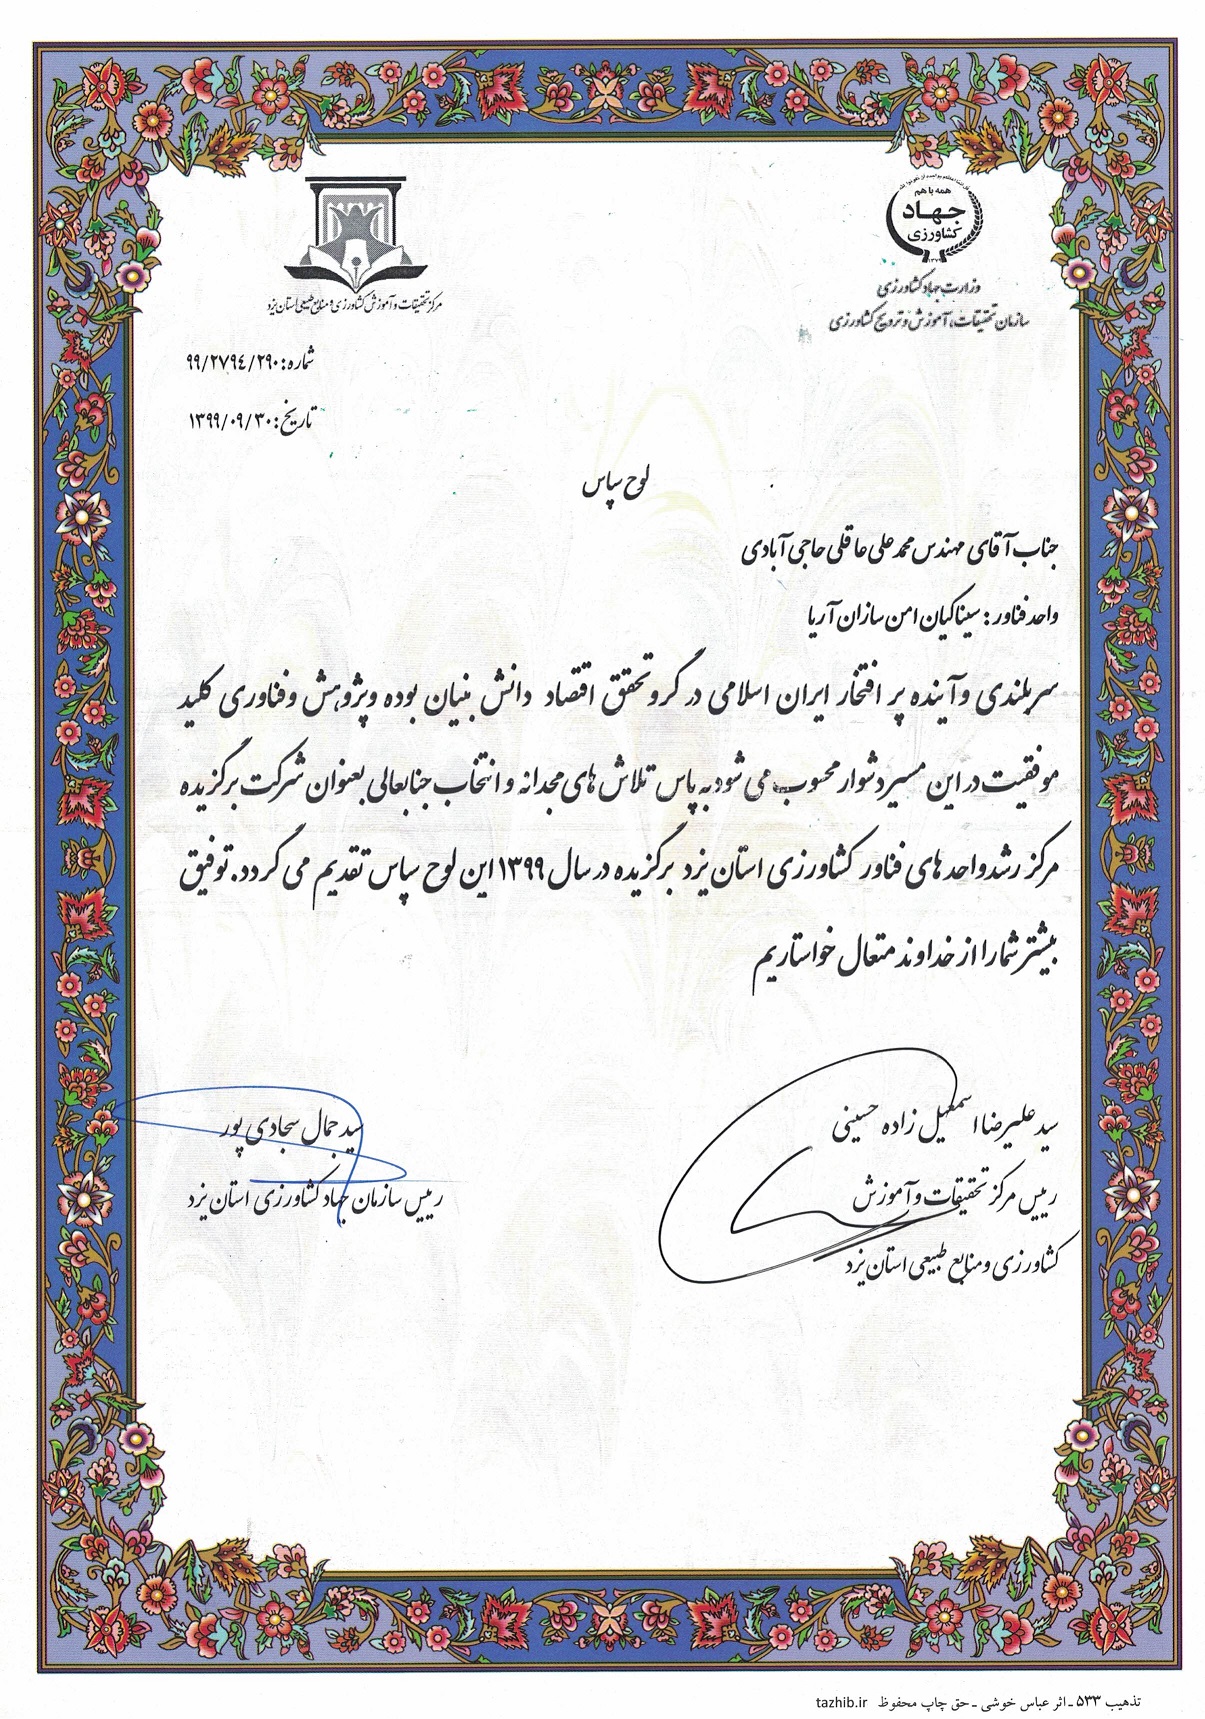 همه با هم
جهاد
کشاورزی
۱۳۷۹
وزارت جهاد کشاورزی
سازمان تحقیقات، آموزش و ترویج کشاورزی
مرکز تحقیقات و آموزش کشاورزی و منابع طبیعی استان یزد
شماره: ۹۹/۲۷۹۴/۲۹۰
تاریخ: ۱۳۹۹/۰۹/۳۰
لوح سپاس
جناب آقای مهندس محمد علی عاقلی حاجی آبادی
واحد فناور: سینا کیان امن سازان آریا
سربلندی و آینده پر افتخار ایران اسلامی در گرو تحقق اقتصاد دانش بنیان بوده و پژوهش و فناوری کلید
موفقیت در این مسیر دشوار محسوب می شود به پاس تلاش های مجدانه و انتخاب جنابعالی بعنوان شرکت برگزیده
مرکز رشد واحدهای فناور کشاورزی استان یزد برگزیده در سال ۱۳۹۹ این لوح سپاس تقدیم می گردد. توفیق
بیشتر شما را از خداوند متعال خواستاریم
سید علیرضا اسمعیل زاده حسینی
رییس مرکز تحقیقات و آموزش
کشاورزی و منابع طبیعی استان یزد
سید جمال سجادی پور
رییس سازمان جهاد کشاورزی استان یزد
تذهیب ۵۳۳ - اثر عباس خوشی - حق چاپ محفوظ tazhib.ir